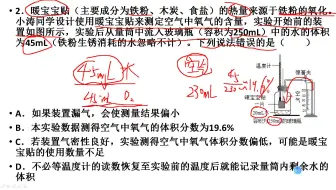 2. 暖宝宝贴（主要成分为铁粉、木炭、食盐）的热量来源于铁粉的氧化，
小涛同学设计使用暖宝宝贴来测定空气中氧气的含量，实验开始前的装
置如图所示，实验后从量筒中流入玻璃瓶（容积为250mL）中的水的体积
为45mL（铁粉生锈消耗的水忽略不计）。下列说法错误的是（ ）
45mL 水
45mL O₂
230mL
温度计
弹簧夹
A．如果装置漏气，会使测量结果偏小
B．本实验数据测得空气中氧气的体积分数为19.6%
C．若装置气密性良好，实验测得空气中氧气体积分数偏低，可能是暖宝
宝贴的使用数量不足
D．不必等温度计的读数恢复至实验前的温度后就能记录量筒内剩余水的
体积